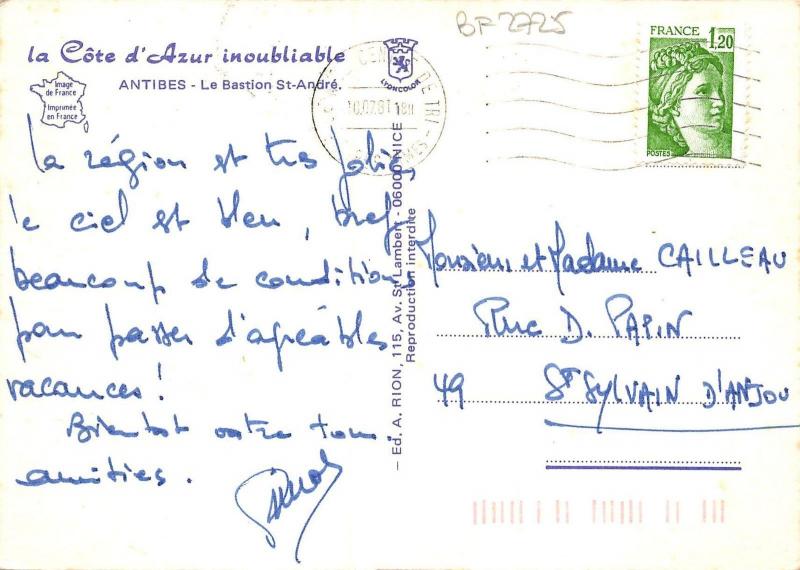 BF 2725
la Côte d'Azur inoubliable
ANTIBES - Le Bastion St-André.
Image
de France
Imprimée
en France
LYONCOLOR
FRANCE 1,20
POSTES
DE TRI
La région est très jolie,
le ciel est bleu, bref
beaucoup de conditions
pour passer d'agréables
vacances !
Bientôt votre tour.
amitiés.
— Ed. A. RION, 115, Av. St Lambert - 06000 NICE
Reproduction interdite
Monsieur et Madame CAILLEAU
Rue D. PAPIN
49 St SYLVAIN D'ANJOU